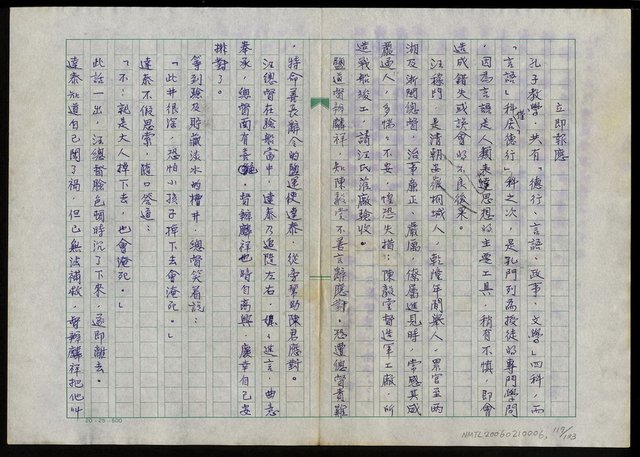 立即報應
孔子教學，共有「德行、言語、政事、文學。」四科，而
「言語」科居「德行」科之次，是孔門列為授徒的專門學問
，因為言語是人類表達思想的主要工具，稍有不慎，即會
造成錯失或誤會的不良後果。
汪稼門，是清朝安徽桐城人，乾隆年間舉人，累官至兩
湖及浙閩總督，治事廉正、嚴厲，僚屬進見時，常感其威
嚴逼人，多惴惴不安，惶恐失措；陳毅堂督造軍工廠，所
造戰船竣工，請汪氏蒞廠驗收。
鹽道督辦麟祥，知陳毅堂不善言辭應對。恐遭總督責難
，特命善長辭令的鹽運使達泰，從旁幫助陳君應對。
汪總督在驗船當中，達泰乃追隨左右，娓娓進言，曲意
奉承，總督面有喜色，督辦麟祥也暗自高興，慶幸自己安
排對了。
等到驗及貯藏淡水的槽井，總督笑着說：
「此井很深，恐怕小孩子掉下去會淹死。」
達泰不假思索，隨口答道：
「不！就是大人掉下去，也會淹死。」
此話一出，汪總督臉色頓時沉了下來，遂即離去。
達泰知道自己闖了禍，但已無法補救，督辦麟祥把他叫
20×25=500
NMTL20060210006
119/193